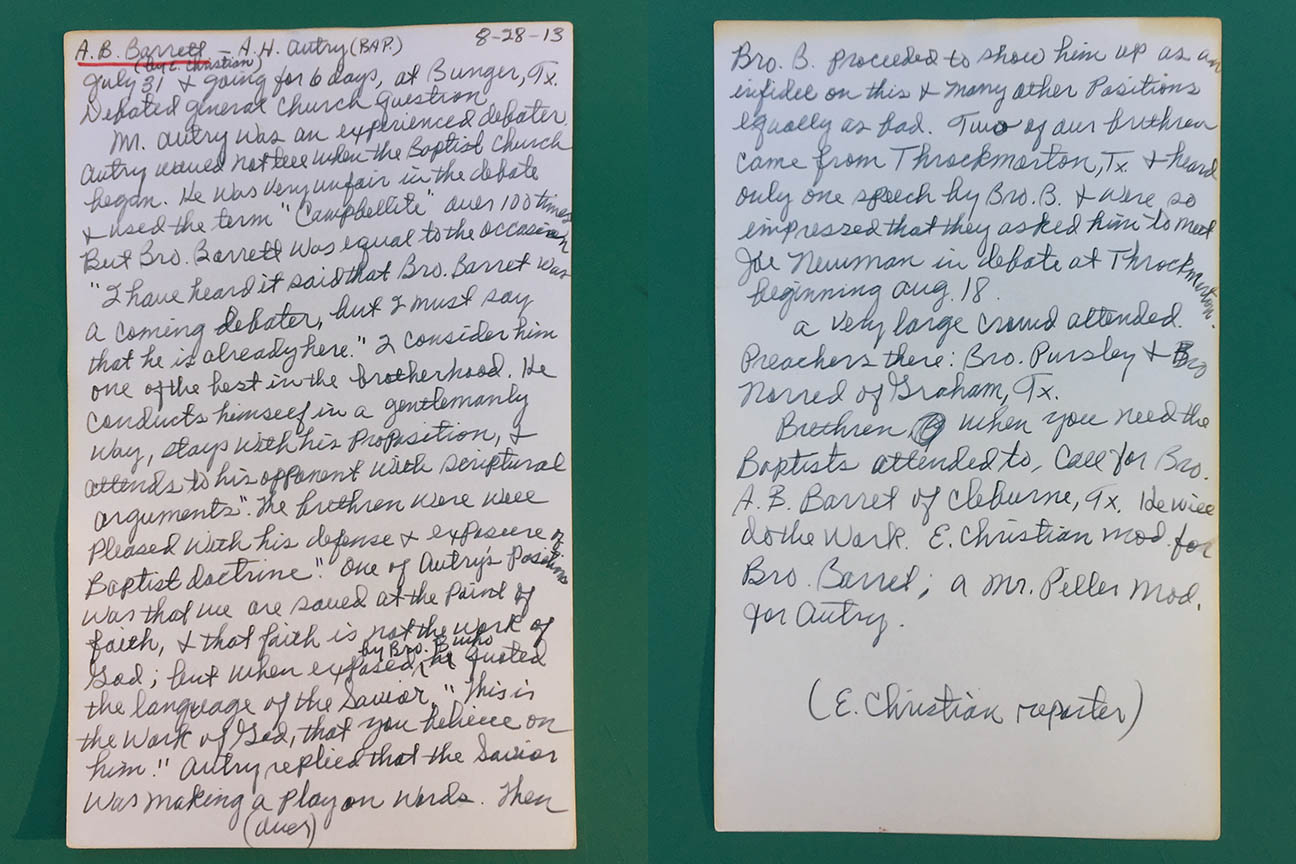 A. B. Barrett – A. H. Autry (BAP.) 8-28-13
(by E. Christian)
July 31 & going for 6 days, at Bunger, Tx.
Debated general Church Question
Mr. Autry was an experienced debater
Autry would not tell when the Baptist Church
began. He was very unfair in the debate
& used the term "Campbellite" over 100 times
But Bro. Barrett was equal to the occasion
"I have heard it said that Bro. Barret was
a coming debater, but I must say
that he is already here." I consider him
one of the best in the brotherhood. He
conducts himself in a gentlemanly
way, stays with his proposition, &
attends to his opponent with scriptural
arguments". The brethren were well
pleased with his defense & exposure of
Baptist doctrine." One of Autry's position
was that we are saved at the point of
faith, & that faith is not the work of
God; but when exposed by Bro. B who he quoted
the language of the Savior, "This is
the work of God, that you believe on
him." Autry replied that the Savior
was making a play on words. Then
(over)
Bro. B. proceeded to show him up as an
infidel on this & many other positions
equally as bad. Two of our brethren
came from Throckmorton, Tx. & heard
only one speech by Bro. B. & were so
impressed that they asked him to meet
Joe Newman in debate at Throckmorton.
beginning Aug. 18.
A very large crowd attended.
Preachers there: Bro. Pursley & Bro
Norred of Graham, Tx.
Brethren, when you need the
Baptists attended to, call for Bro.
A. B. Barret of Cleburne, Tx. He will
do the work. E. Christian mod. for
Bro. Barret; a Mr. Peller mod.
for Autry.
(E. Christian reporter)